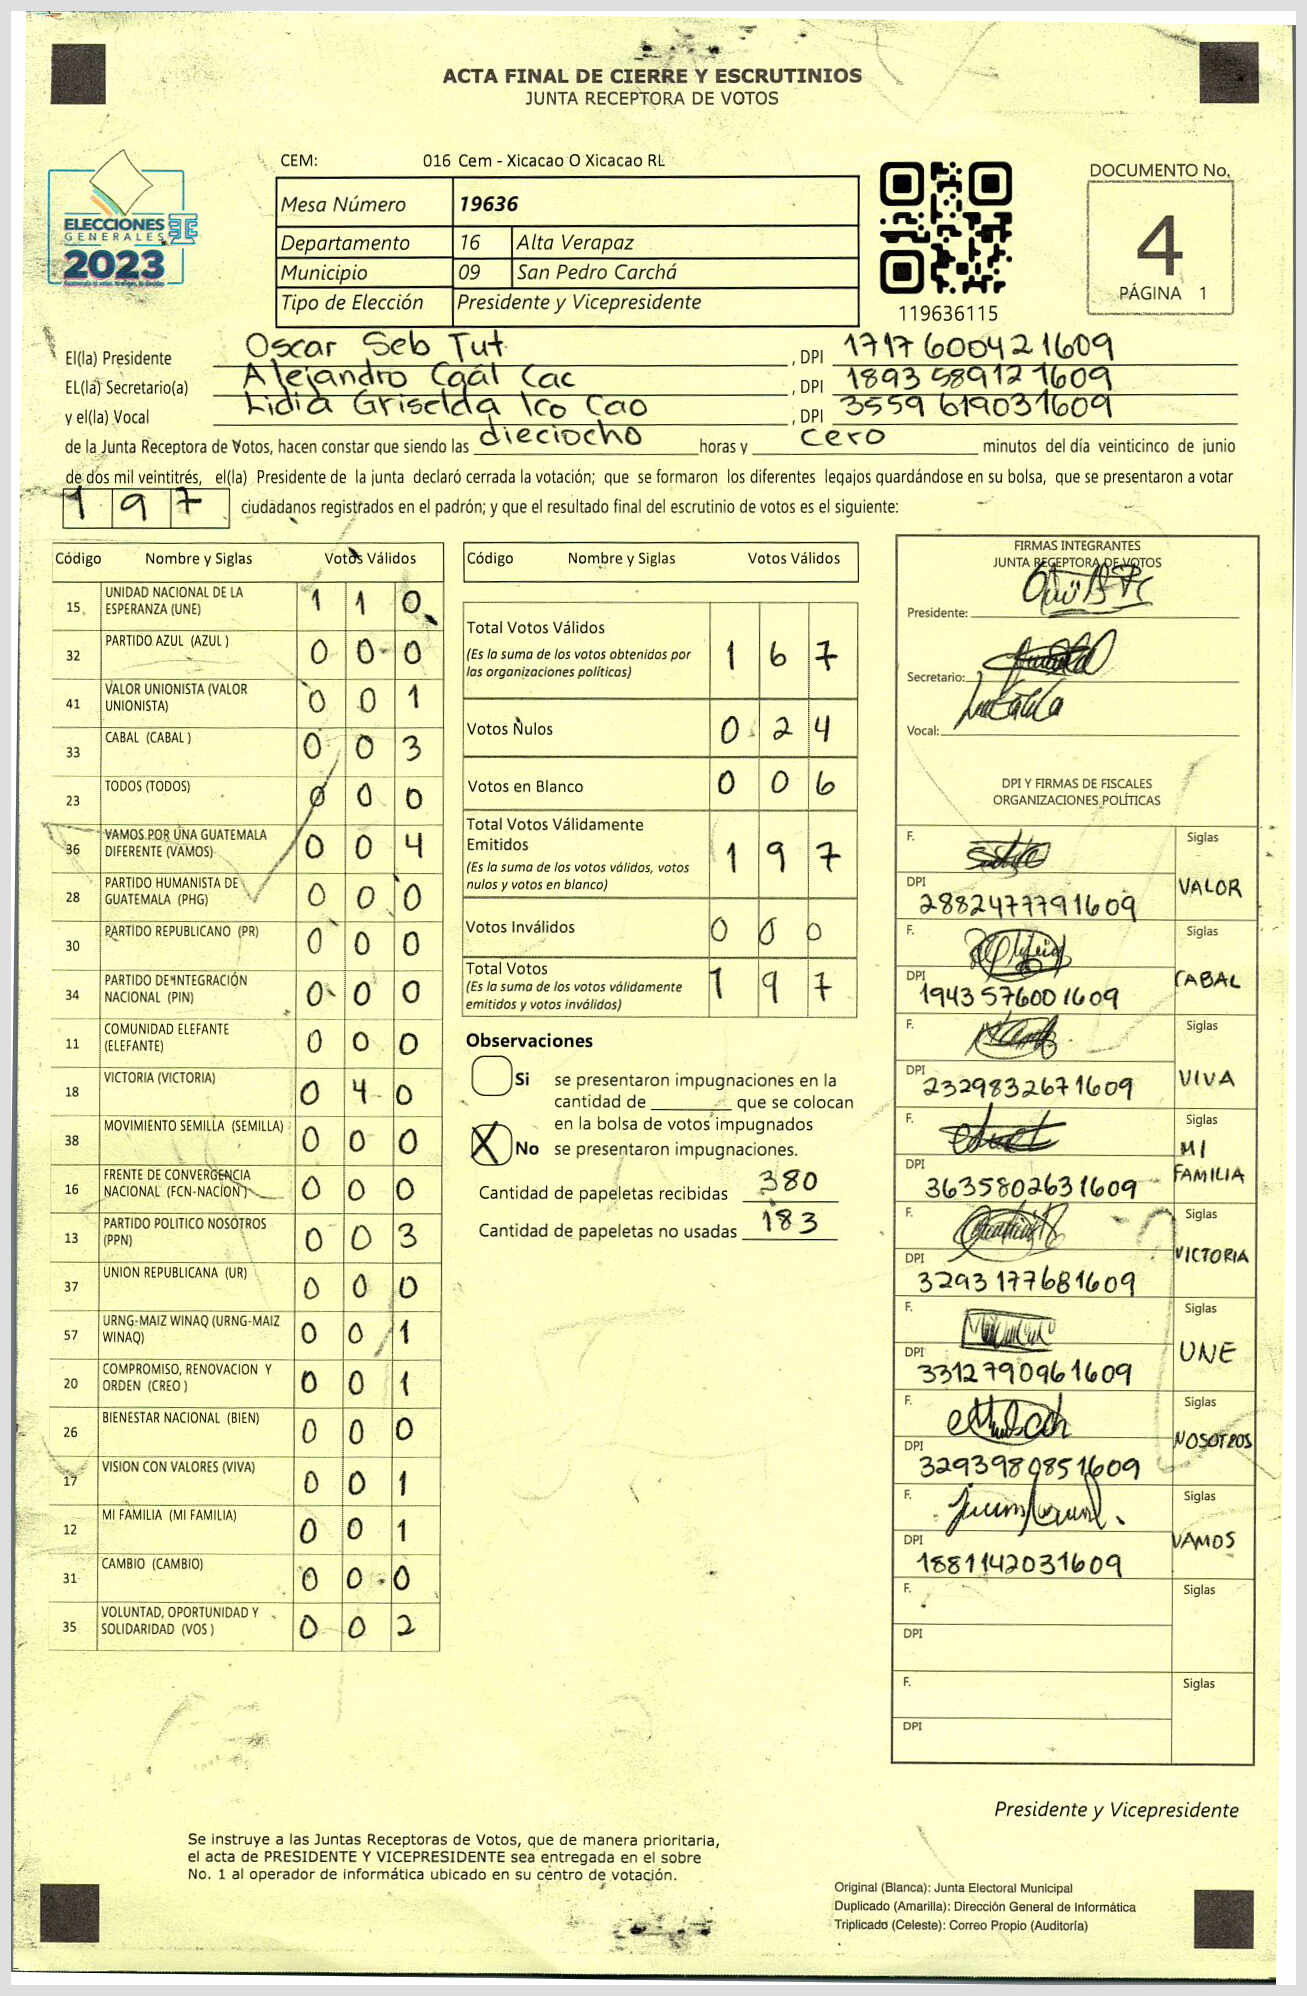 ACTA FINAL DE CIERRE Y ESCRUTINIOS
JUNTA RECEPTORA DE VOTOS
CEM: 016 Cem - Xicacao O Xicacao RL
Mesa Número 19636
Departamento 16 Alta Verapaz
Municipio 09 San Pedro Carchá
Tipo de Elección Presidente y Vicepresidente
ELECCIONES
GENERALES
2023
119636115
DOCUMENTO No.
4
PÁGINA 1
El(la) Presidente Oscar Seb Tut , DPI 1717 60042 1609
EL(la) Secretario(a) Alejandro Caal Cac , DPI 1893 58912 1609
y el(la) Vocal Lidia Griselda Ico Cao , DPI 3559 61903 1609
de la Junta Receptora de Votos, hacen constar que siendo las dieciocho horas y cero minutos del día veinticinco de junio
de dos mil veintitrés, el(la) Presidente de la junta declaró cerrada la votación; que se formaron los diferentes legajos guardándose en su bolsa, que se presentaron a votar
1 9 7 ciudadanos registrados en el padrón; y que el resultado final del escrutinio de votos es el siguiente:
Código Nombre y Siglas Votos Válidos
15 UNIDAD NACIONAL DE LA ESPERANZA (UNE) 1 1 0
32 PARTIDO AZUL (AZUL ) 0 0 0
41 VALOR UNIONISTA (VALOR UNIONISTA) 0 0 1
33 CABAL (CABAL ) 0 0 3
23 TODOS (TODOS) 0 0 0
36 VAMOS POR UNA GUATEMALA DIFERENTE (VAMOS) 0 0 4
28 PARTIDO HUMANISTA DE GUATEMALA (PHG) 0 0 0
30 PARTIDO REPUBLICANO (PR) 0 0 0
34 PARTIDO DE INTEGRACIÓN NACIONAL (PIN) 0 0 0
11 COMUNIDAD ELEFANTE (ELEFANTE) 0 0 0
18 VICTORIA (VICTORIA) 0 4 0
38 MOVIMIENTO SEMILLA (SEMILLA) 0 0 0
16 FRENTE DE CONVERGENCIA NACIONAL (FCN-NACION ) 0 0 0
13 PARTIDO POLITICO NOSOTROS (PPN) 0 0 3
37 UNION REPUBLICANA (UR) 0 0 0
57 URNG-MAIZ WINAQ (URNG-MAIZ WINAQ) 0 0 1
20 COMPROMISO, RENOVACION Y ORDEN (CREO ) 0 0 1
26 BIENESTAR NACIONAL (BIEN) 0 0 0
17 VISION CON VALORES (VIVA) 0 0 1
12 MI FAMILIA (MI FAMILIA) 0 0 1
31 CAMBIO (CAMBIO) 0 0 0
35 VOLUNTAD, OPORTUNIDAD Y SOLIDARIDAD (VOS ) 0 0 2
Código Nombre y Siglas Votos Válidos
Total Votos Válidos 1 6 7
(Es la suma de los votos obtenidos por
las organizaciones políticas)
Votos Nulos 0 2 4
Votos en Blanco 0 0 6
Total Votos Válidamente
Emitidos 1 9 7
(Es la suma de los votos válidos, votos
nulos y votos en blanco)
Votos Inválidos 0 0 0
Total Votos 1 9 7
(Es la suma de los votos válidamente
emitidos y votos inválidos)
Observaciones
Si se presentaron impugnaciones en la
cantidad de ________ que se colocan
en la bolsa de votos impugnados
X No se presentaron impugnaciones.
Cantidad de papeletas recibidas 380
Cantidad de papeletas no usadas 183
FIRMAS INTEGRANTES
JUNTA RECEPTORA DE VOTOS
Presidente:
Secretario:
Vocal:
DPI Y FIRMAS DE FISCALES
ORGANIZACIONES POLÍTICAS
F. Siglas
DPI 2882477791609 VALOR
F. Siglas
DPI 1943 57600 1609 CABAL
F. Siglas
DPI 2329832671609 VIVA
F. Siglas
DPI 3635802631609 MI FAMILIA
F. Siglas
DPI 3293 177681609 VICTORIA
F. Siglas
DPI 3312790961609 UNE
F. Siglas
DPI 3293980851609 NOSOTROS
F. Siglas
DPI 1881142031609 VAMOS
F. Siglas
DPI
F. Siglas
DPI
Presidente y Vicepresidente
Se instruye a las Juntas Receptoras de Votos, que de manera prioritaria,
el acta de PRESIDENTE Y VICEPRESIDENTE sea entregada en el sobre
No. 1 al operador de informática ubicado en su centro de votación.
Original (Blanca): Junta Electoral Municipal
Duplicado (Amarilla): Dirección General de Informática
Triplicado (Celeste): Correo Propio (Auditoría)